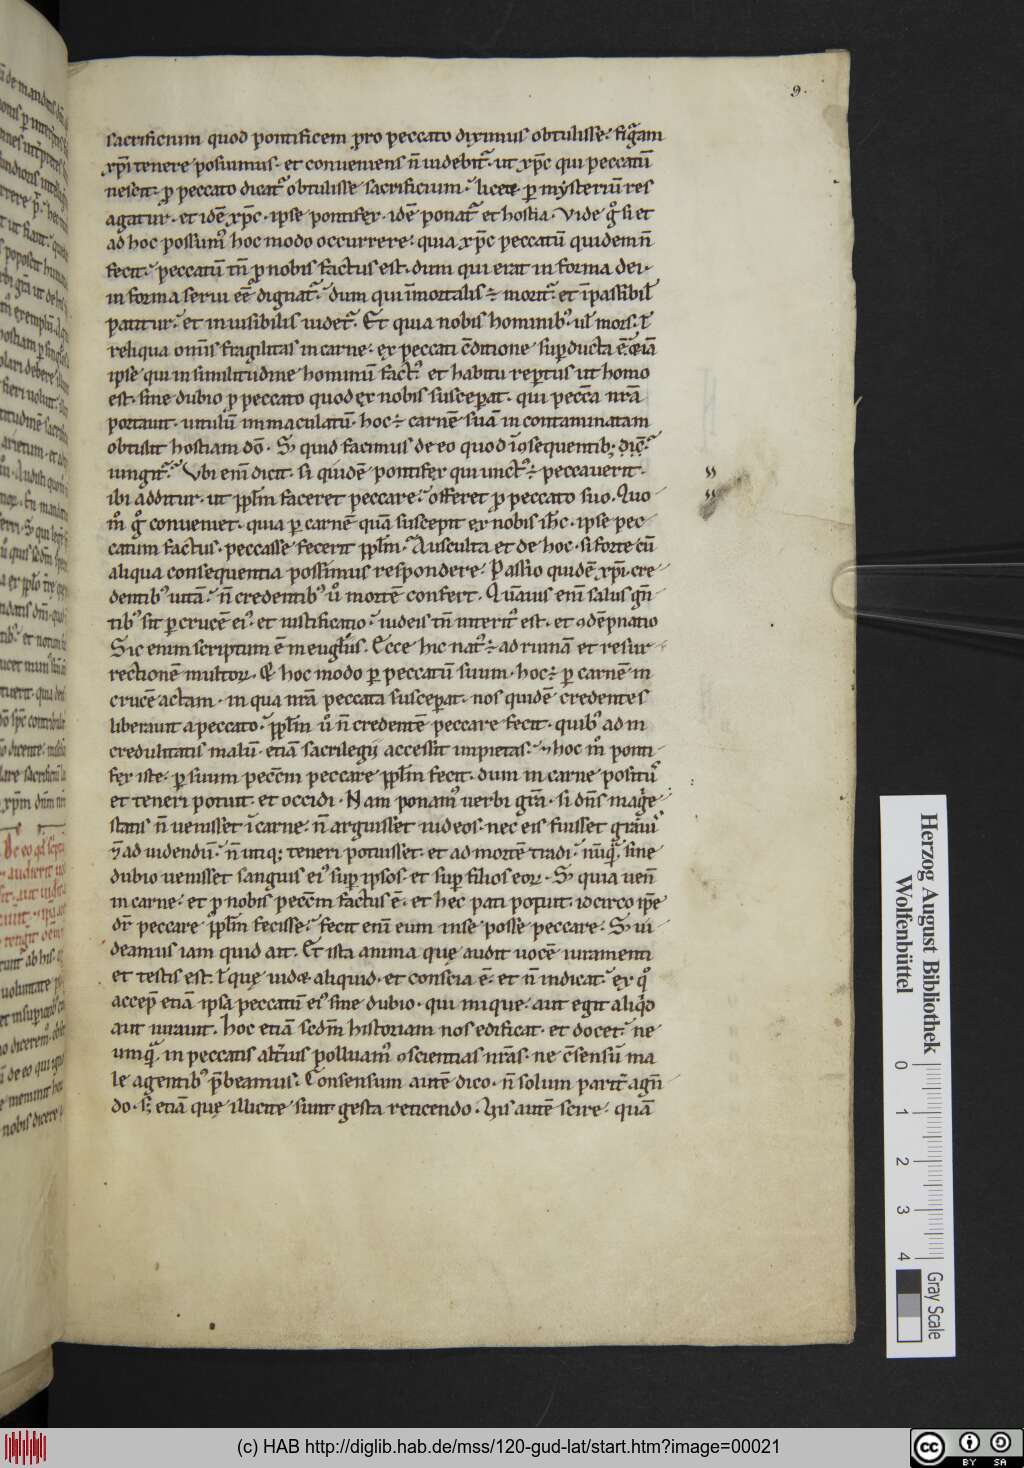 9.
sacrificium quod pontificem pro peccato diximus obtulisse. figͣam
xp̄i tenere posuimus. et conueniens n̄ uidebit᷑. ut xp̄c qui peccatū
nescit. ꝓ peccato dicat᷑ obtulisse sacrificium. licet ꝑ mysteriū res
agatur. et idē xp̄c. ipse pontifex. idē ponat᷑ et hostia. Vide gͦ si et
ad hoc possumꝰ hoc modo occurrere. quia xp̄c peccatū quidem n̄
fecit. peccatū tn̄ ꝓ nobis factus est. dum qui erat in forma dei.
in forma serui eē dignat᷑. dum qui īmortalis ÷ morit᷑. et īpassibil̄
patitur. et inuisibilis uidet᷑. Et quia nobis hominibꝰ. ul̄ mors. l̄
reliqua om̄is fragilitas in carne. ex peccati c̄ditione suꝑducta ē. etiā
ipse qui in similitudine hominū factꝰ. et habitu reꝑtus ut homo
est. sine dubio ꝓ peccato quod ex nobis susceꝑat. qui pecc̄a nr̄a
portauit. uitulū immaculatū. hoc ÷ carnē suā incontaminatam
obtulit hostiam dō. S; quid facimus de eo quod ī ꝯsequentibꝫ. dic̄.
ungit᷑. Vbi enī dicit. si quidē pontifex qui unctꝰ ÷ peccauerit.
ibi additur. ut pp̄lm faceret peccare. offeret ꝓ peccato suo. Quo
mͦ gͦ conueniet. quia ꝑ carnē quā suscepit ex nobis ih̄c. ipse pec
catum factus. peccasse fecerit pp̄lm. Ausculta et de hoc. si forte cū
aliqua consequentia possimus respondere. Passio quidē xp̄i. cre
dentibꝰ uitā. n̄ credentibꝰ uͦ mortē confert. Quāuis enī salus gn̄
tibꝰ sit ꝑ crucē eiꝰ. et iustificatio. iudeis tn̄ interitꝰ est. et ꝯdēpnatio
Sic enim scriptum ē in eugl̄iis. Ecce hic natꝰ ÷ ad ruinā et resur
rectionē multoꝝ. Et hoc modo ꝑ peccatū suum. hoc ÷ ꝑ carnē in
crucē actam. in qua nr̄a peccata susceꝑat. nos quidē credentes
liberauit a peccato. pp̄lm uͦ n̄ credentē peccare fecit. quibꝰ ad in
credulitatis malū. etiā sacrilegii accessit impietas. hoc mͦ ponti
fex iste. ꝑ suum pecc̄m peccare pp̄lm fecit. dum in carne positꝰ
et teneri potuit. et occidi. Nam ponamꝰ uerbi grā. si dn̄s mage
statis n̄ uenisset ī carne. n̄ arguisset iudeos. nec eis fuisset grauis
ad uidendū. n̄ utiqꝫ teneri potuisset. et ad mortē tradi. nūqͣ sine
dubio uenisset sanguis eiꝰ suꝑ ipsos. et suꝑ filios eoꝝ. S; quia uen̄
in carne. et ꝓ nobis pecc̄m factus ē. et hec pati potuit. idcirco ip̄e
dr̄ peccare pp̄lm fecisse. fecit enī eum in se posse peccare. S; ui
deamus iam quid ait. Et ista anima quę audit uocē iuramenti
et testis est. l̄ quę uidet aliquid. et conscia ē. et n̄ indicat. ex qͦ
accep̄ etiā ipsa peccatū eiꝰ sine dubio. qui inique. aut egit aliqͥd
aut iurauit. hoc etiā scdm̄ historiam nos edificat. et docet. ne
umqͣ in peccatis alt̄ius polluamꝰ ꝯscientias nr̄as. ne c̄sensū ma
le agentibꝰ p̄beamus. Consensum autē dico. n̄ solum parit᷑ agn̄
do. s; etiā quę illicite sunt gesta reticendo. Vis autē scire. quā
Herzog August Bibliothek
Wolfenbüttel
0 1 2 3 4
Gray Scale
(c) HAB http://diglib.hab.de/mss/120-gud-lat/start.htm?image=00021
cc BY SA